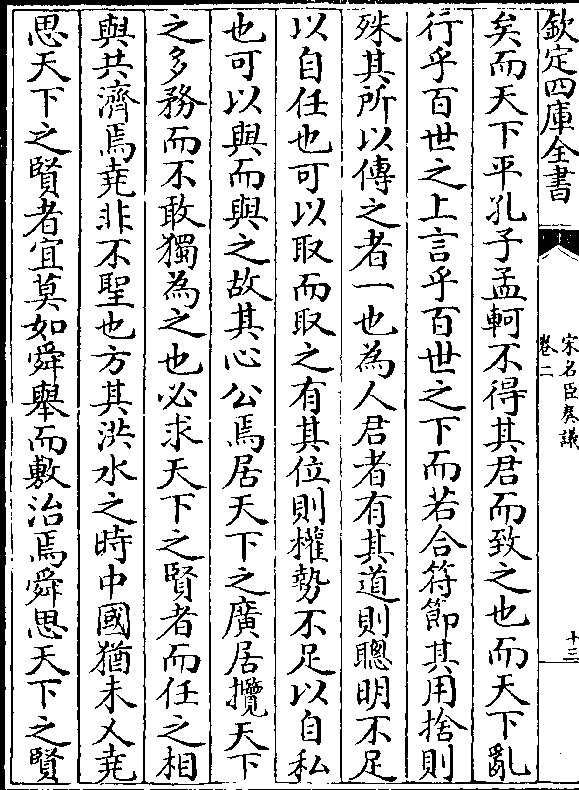 欽定四庫全書
宋名臣奏議
卷二
十三
矣而天下平孔子孟軻不得其君而致之也而天下亂
行乎百世之上言乎百世之下而若合符節其用捨則
殊其所以傳之者一也為人君者有其道則聰明不足
以自任也可以取而取之有其位則權勢不足以自私
也可以與而與之故其心公焉居天下之廣居攬天下
之多務而不敢獨為之也必求天下之賢者而任之相
與共濟焉堯非不聖也方其洪水之時中國猶未乂堯
思天下之賢者宜莫如舜舉而敷治焉舜思天下之賢